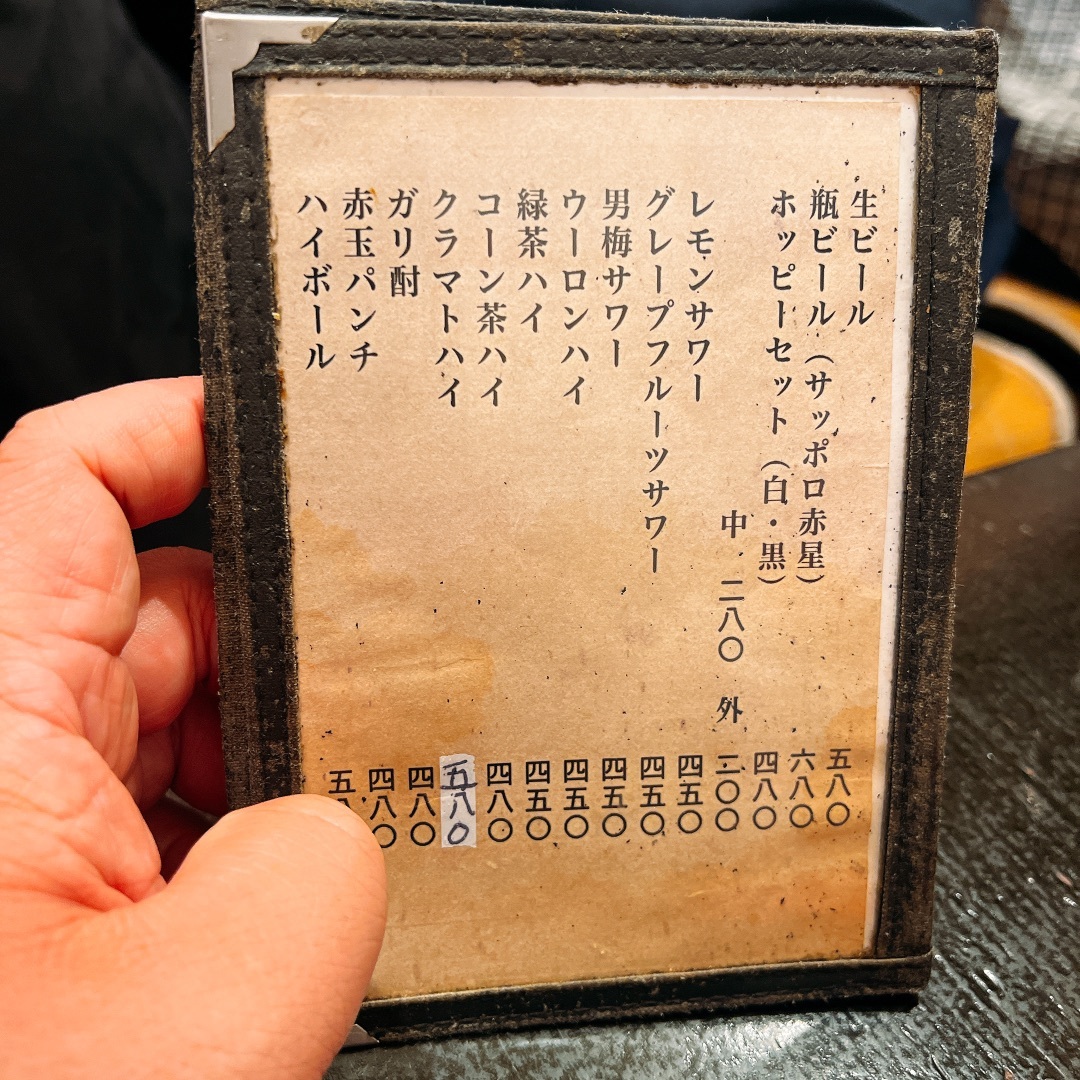 生ビール 五八〇
瓶ビール（サッポロ赤星） 六八〇
ホッピーセット（白・黒） 四八〇
中 二八〇 外 二〇〇
レモンサワー 四五〇
グレープフルーツサワー 四五〇
男梅サワー 四五〇
ウーロンハイ 四五〇
緑茶ハイ 四五〇
コーン茶ハイ 四八〇
クラマトハイ 五八〇
ガリ酎 四八〇
赤玉パンチ 四八〇
ハイボール